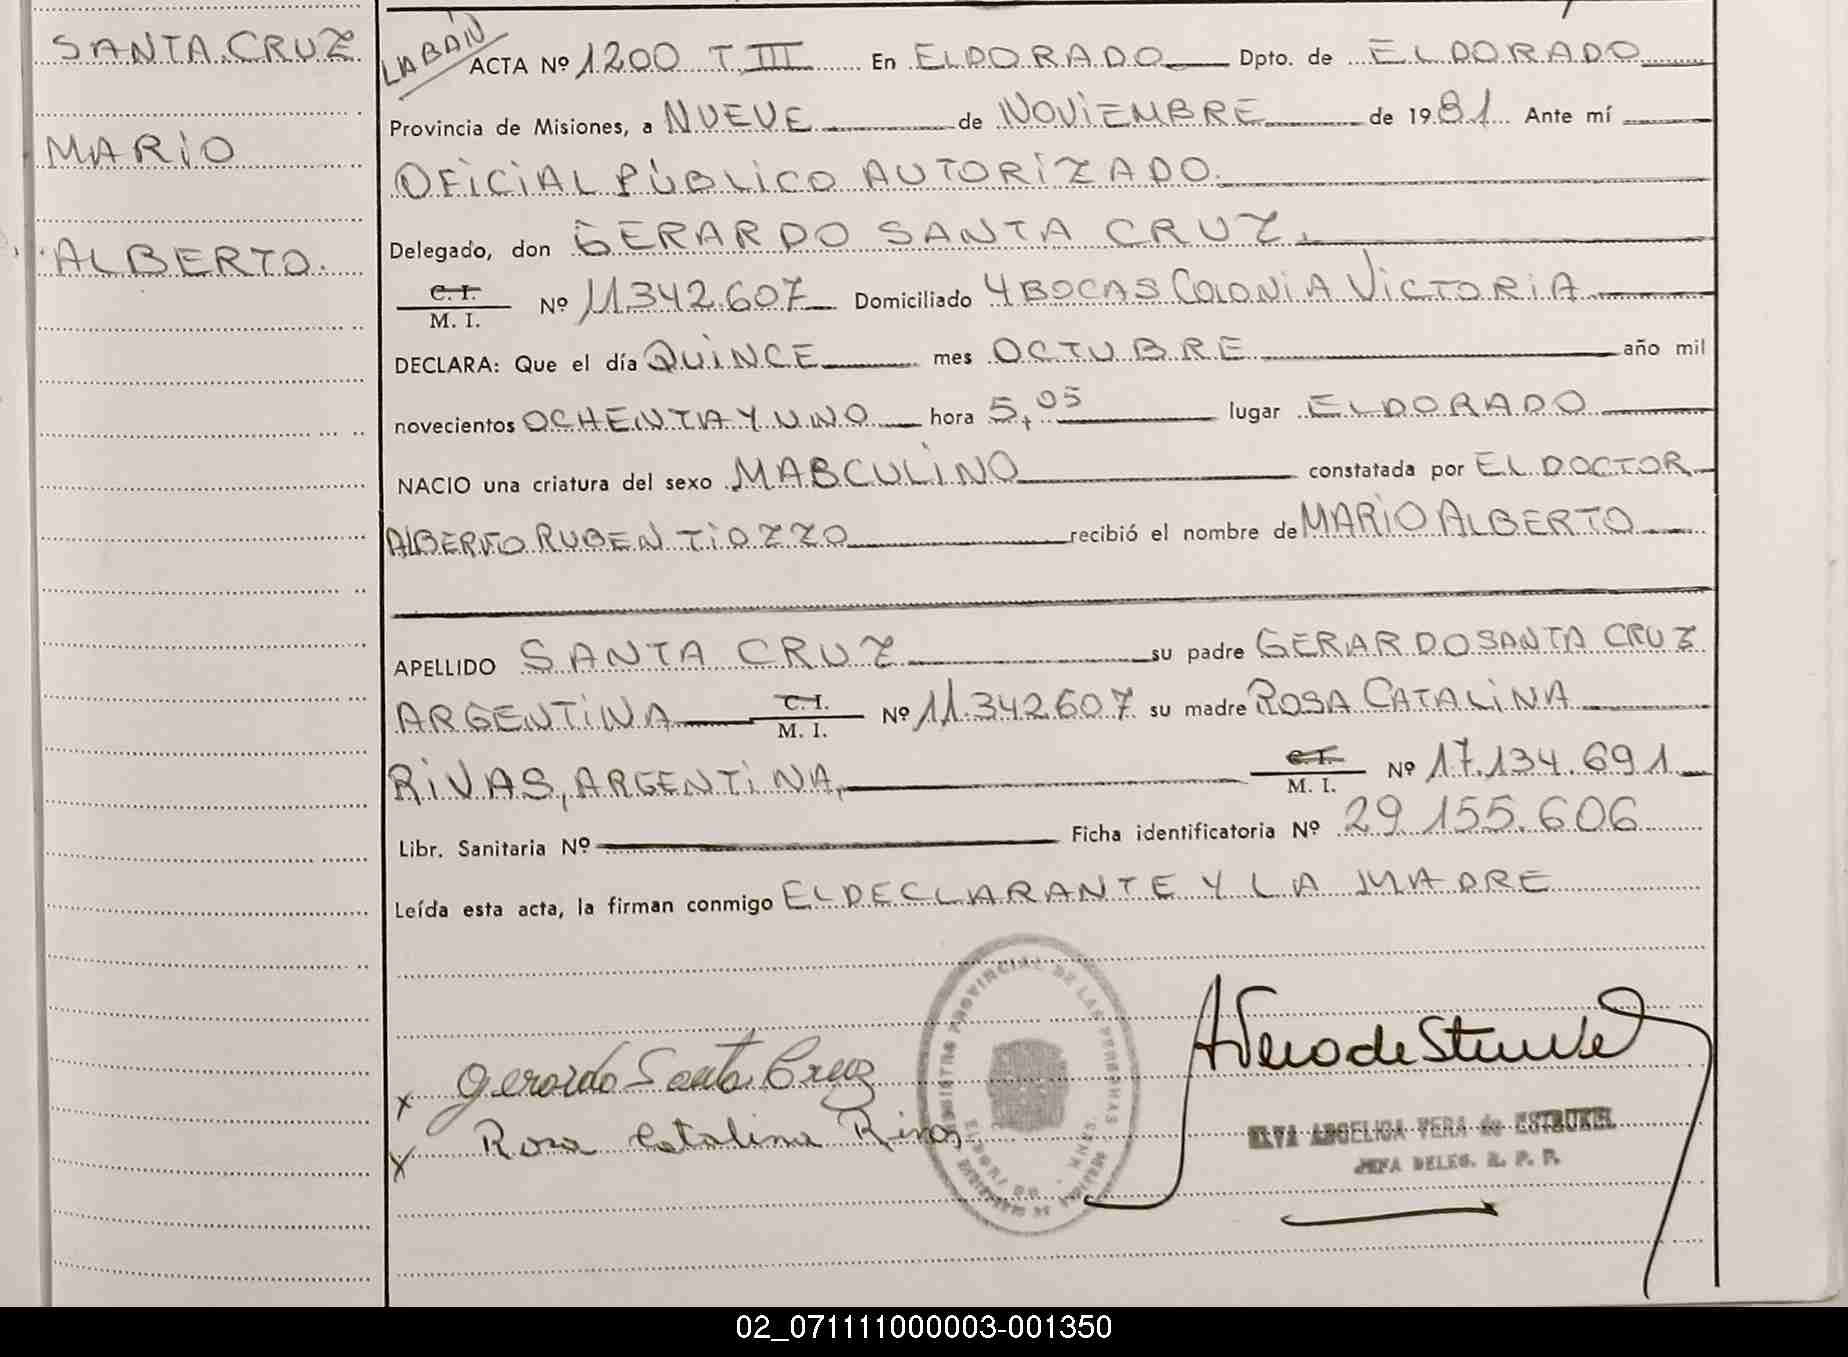 SANTA CRUZ
MARIO
ALBERTO.
LABAN
ACTA Nº 1200 T III En ELDORADO Dpto. de ELDORADO
Provincia de Misiones, a NUEVE de NOVIEMBRE de 1981 Ante mí
OFICIAL PÚBLICO AUTORIZADO.
Delegado, don GERARDO SANTA CRUZ.
C. I.
M. I. Nº 11.342.607 Domiciliado 4 BOCAS COLONIA VICTORIA
DECLARA: Que el día QUINCE mes OCTUBRE año mil
novecientos OCHENTA Y UNO hora 5,05 lugar ELDORADO
NACIO una criatura del sexo MASCULINO constatada por EL DOCTOR
ALBERTO RUBEN TIOZZO recibió el nombre de MARIO ALBERTO
APELLIDO SANTA CRUZ su padre GERARDO SANTA CRUZ
ARGENTINA C. I.
M. I. Nº 11.342.607 su madre ROSA CATALINA
RIVAS, ARGENTINA, C. I.
M. I. Nº 17.134.691
Libr. Sanitaria Nº Ficha identificatoria Nº 29.155.606
Leída esta acta, la firman conmigo EL DECLARANTE Y LA MADRE
REGISTRO PROVINCIAL DE LAS PERSONAS
ELDORADO
x Gerardo Santa Cruz
x Rosa Catalina Rivas
ELVA ANGELICA VERA de ESTRUKEL
JEFA DELEG. R. P. P.
02_071111000003-001350